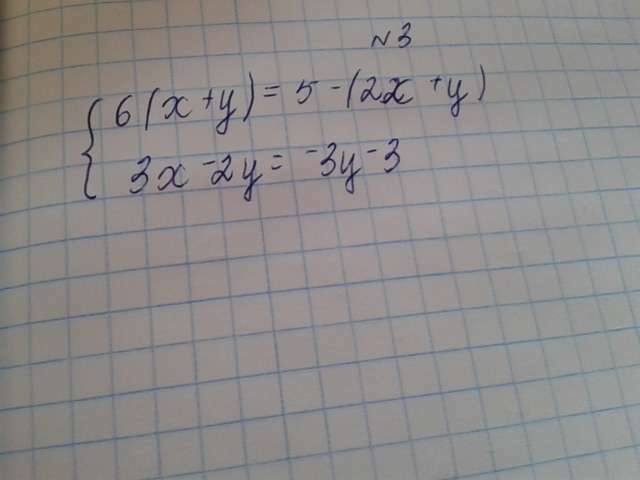 №3
6(x+y)=5-(2x+y)
3x-2y=-3y-3